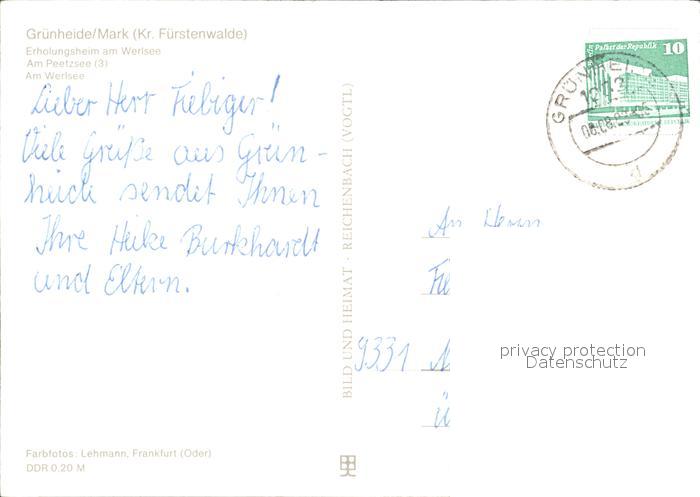 Grünheide/Mark (Kr. Fürstenwalde)
Erholungsheim am Werlsee
Am Peetzsee (3)
Am Werlsee
Lieber Herr Fiebiger!
Viele Grüße aus Grün-
heide sendet Ihnen
Ihre Heike Burkhardt
und Eltern.
Farbfotos: Lehmann, Frankfurt (Oder)
DDR 0.20 M
BILD UND HEIMAT · REICHENBACH (VOGTL)
Palast der Republik 10
An Herrn
9331
privacy protection
Datenschutz